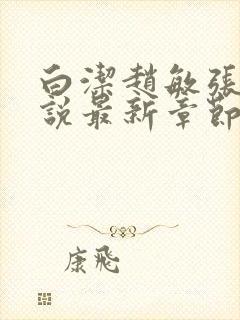 白潔趙敏張
說最新章節
康飛